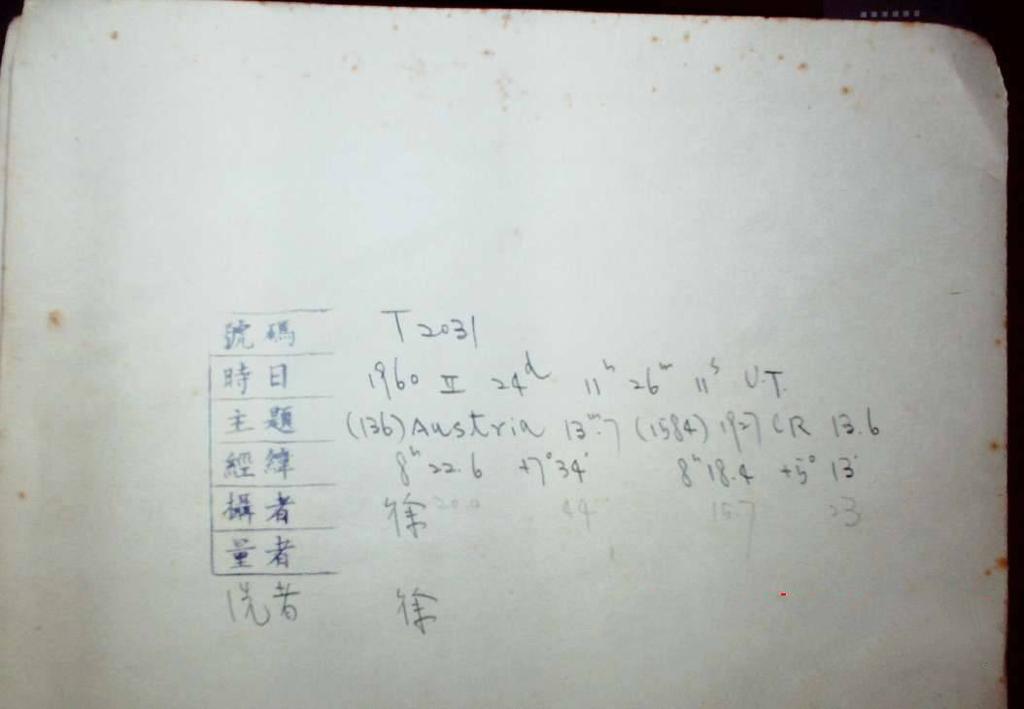 號碼 T2031
時日 1960 II 24d 11h 26m 11s U.T.
主題 (136) Austria 13m.7 (1584) 1927 CR 13.6
經緯 8h 22.6 +7° 34' 8h 18.4 +5° 13'
攝者 徐 20.0 44 15.7 23
量者
洗者 徐